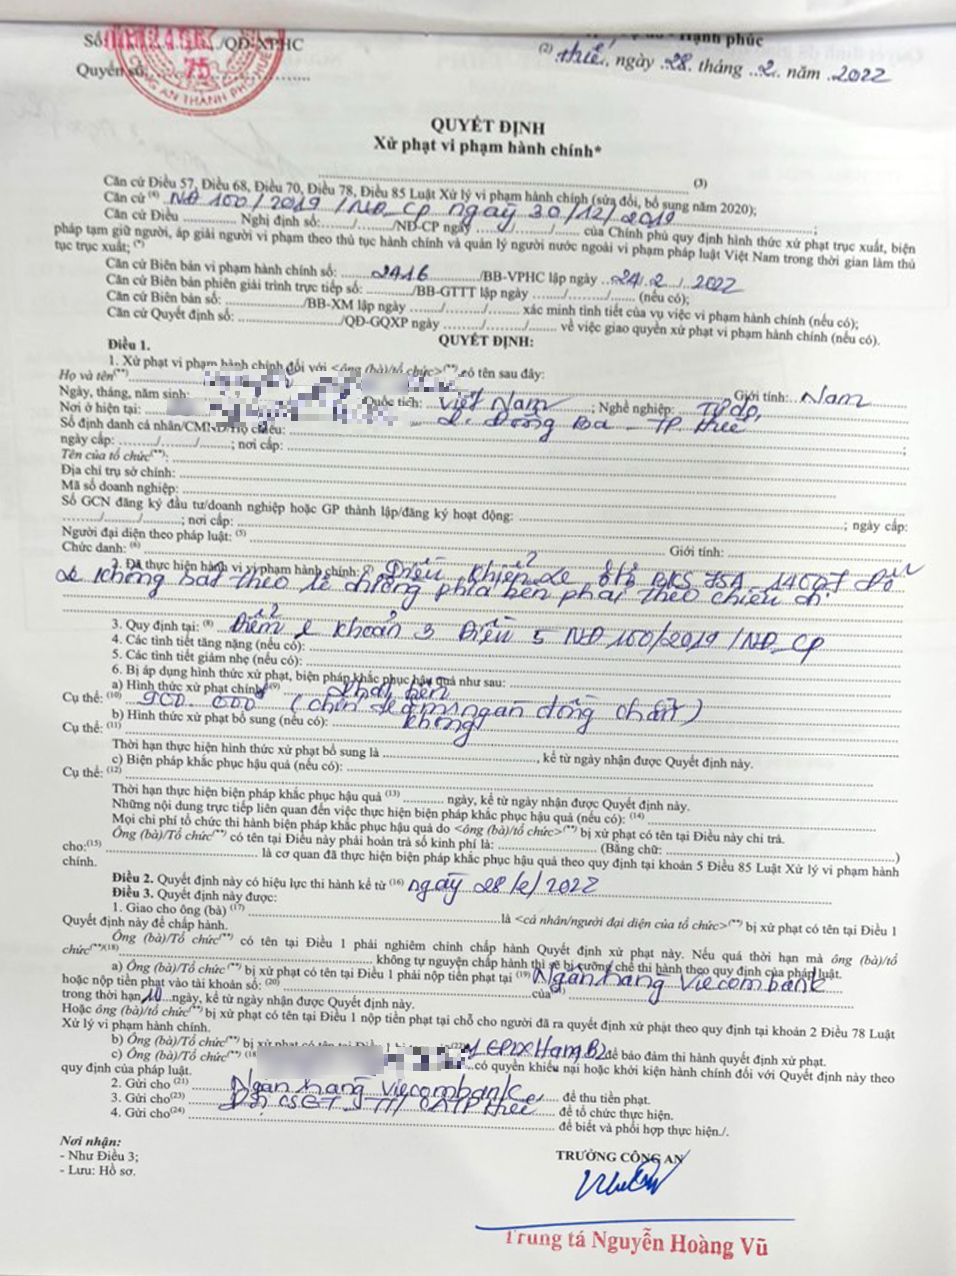 Số /QĐ-XPHC
Hạnh phúc
Quyển số 75
CÔNG AN THÀNH PHỐ HUẾ
(2) Huế, ngày 28 tháng 2 năm 2022
QUYẾT ĐỊNH
Xử phạt vi phạm hành chính*
(3)
Căn cứ Điều 57, Điều 68, Điều 70, Điều 78, Điều 85 Luật Xử lý vi phạm hành chính (sửa đổi, bổ sung năm 2020);
Căn cứ (4) NĐ 100/2019/NĐ_CP ngày 30/12/2019;
Căn cứ Điều ............ Nghị định số:....../....../NĐ-CP ngày ....../....../...... của Chính phủ quy định hình thức xử phạt trục xuất, biện
pháp tạm giữ người, áp giải người vi phạm theo thủ tục hành chính và quản lý người nước ngoài vi phạm pháp luật Việt Nam trong thời gian làm thủ
tục trục xuất; (*)
Căn cứ Biên bản vi phạm hành chính số: 2416 /BB-VPHC lập ngày 24/2/2022
Căn cứ Biên bản phiên giải trình trực tiếp số: ............/BB-GTTT lập ngày ....../....../...... (nếu có);
Căn cứ Biên bản số: ............/BB-XM lập ngày ....../....../...... xác minh tình tiết của vụ việc vi phạm hành chính (nếu có);
Căn cứ Quyết định số: ............/QĐ-GQXP ngày ....../....../...... về việc giao quyền xử phạt vi phạm hành chính (nếu có).
QUYẾT ĐỊNH:
Điều 1.
1. Xử phạt vi phạm hành chính đối với <ông (bà)/tổ chức>(**) có tên sau đây:
Họ và tên(**) Giới tính: Nam
Ngày, tháng, năm sinh: Quốc tịch: Việt Nam; Nghề nghiệp: Tự do,
Nơi ở hiện tại: P. Đông Ba - TP Huế
Số định danh cá nhân/CMND/Hộ chiếu: ............;
ngày cấp: ....../....../......; nơi cấp: ............
Tên của tổ chức(**): ............
Địa chỉ trụ sở chính: ............
Mã số doanh nghiệp: ............
Số GCN đăng ký đầu tư/doanh nghiệp hoặc GP thành lập/đăng ký hoạt động: ............; ngày cấp:
....../....../......; nơi cấp: ............
Người đại diện theo pháp luật: (5) ............ Giới tính: ............
Chức danh: (6) ............
2. Đã thực hiện hành vi vi phạm hành chính: (7) Điều khiển xe ôtô BKS 75A_14007 đỗ
xe không sát theo lề đường phía bên phải theo chiều đi.
3. Quy định tại: (8) Điểm e khoản 3 Điều 5 NĐ 100/2019/NĐ_CP
4. Các tình tiết tăng nặng (nếu có): ............
5. Các tình tiết giảm nhẹ (nếu có): ............
6. Bị áp dụng hình thức xử phạt, biện pháp khắc phục hậu quả như sau:
a) Hình thức xử phạt chính (9) Phạt tiền
Cụ thể: (10) 900.000 (chín trăm ngàn đồng chẵn)
b) Hình thức xử phạt bổ sung (nếu có): không
Cụ thể: (11) ............
Thời hạn thực hiện hình thức xử phạt bổ sung là ............, kể từ ngày nhận được Quyết định này.
c) Biện pháp khắc phục hậu quả (nếu có): ............
Cụ thể: (12) ............
Thời hạn thực hiện biện pháp khắc phục hậu quả (13) ............ ngày, kể từ ngày nhận được Quyết định này.
Những nội dung trực tiếp liên quan đến việc thực hiện biện pháp khắc phục hậu quả (nếu có): (14) ............
Mọi chi phí tổ chức thi hành biện pháp khắc phục hậu quả do <ông (bà)/tổ chức>(**) bị xử phạt có tên tại Điều này chi trả.
Ông (bà)/Tổ chức(**) có tên tại Điều này phải hoàn trả số kinh phí là: ............ (Bằng chữ: ............)
cho:(15) ............ là cơ quan đã thực hiện biện pháp khắc phục hậu quả theo quy định tại khoản 5 Điều 85 Luật Xử lý vi phạm hành
chính.
Điều 2. Quyết định này có hiệu lực thi hành kể từ (16) ngày 28/2/2022
Điều 3. Quyết định này được:
1. Giao cho ông (bà) (17) ............ là <cá nhân/người đại diện của tổ chức>(**) bị xử phạt có tên tại Điều 1
Quyết định này để chấp hành.
Ông (bà)/Tổ chức(**) có tên tại Điều 1 phải nghiêm chỉnh chấp hành Quyết định xử phạt này. Nếu quá thời hạn mà ông (bà)/tổ
chức(**)(18) ............ không tự nguyện chấp hành thì sẽ bị cưỡng chế thi hành theo quy định của pháp luật.
a) Ông (bà)/Tổ chức(**) bị xử phạt có tên tại Điều 1 phải nộp tiền phạt tại (19) Ngân hàng Viecombank
hoặc nộp tiền phạt vào tài khoản số: (20) ............ của(21) ............
trong thời hạn 10 ngày, kể từ ngày nhận được Quyết định này.
Hoặc ông (bà)/tổ chức(**) bị xử phạt có tên tại Điều 1 nộp tiền phạt tại chỗ cho người đã ra quyết định xử phạt theo quy định tại khoản 2 Điều 78 Luật
Xử lý vi phạm hành chính.
b) Ông (bà)/Tổ chức(**) bị xử phạt có tên tại Điều 1 (22) 1 GPLX Hạng B2 để bảo đảm thi hành quyết định xử phạt.
c) Ông (bà)/Tổ chức(**) (18 có quyền khiếu nại hoặc khởi kiện hành chính đối với Quyết định này theo
quy định của pháp luật.
2. Gửi cho (21) Ngân hàng Viecombank để thu tiền phạt.
3. Gửi cho(23) Đội CSGT-TT/CATP Huế để tổ chức thực hiện.
4. Gửi cho(24) ............ để biết và phối hợp thực hiện./.
Nơi nhận:
- Như Điều 3;
- Lưu: Hồ sơ.
TRƯỞNG CÔNG AN
Trung tá Nguyễn Hoàng Vũ